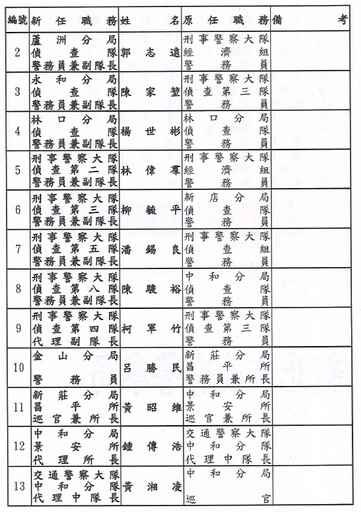 編號 新任職務 姓名 原任職務 備考
2 蘆洲分局 偵查隊 警務員兼副隊長 郭志遠 刑事警察大隊 經濟組 警務員
3 永和分局 偵查隊 警務員兼副隊長 陳家堃 刑事警察大隊 偵查第三隊 警務員
4 林口分局 偵查隊 警務員兼副隊長 楊世彬 林口分局 偵查隊 警務員
5 刑事警察大隊 偵查第二隊 警務員兼副隊長 林偉羣 刑事警察大隊 經濟組 警務員
6 刑事警察大隊 偵查第三隊 警務員兼副隊長 柳毓平 新店分局 偵查隊 警務員
7 刑事警察大隊 偵查第五隊 警務員兼副隊長 潘錫良 刑事警察大隊 偵查隊 警務員
8 刑事警察大隊 偵查第八隊 警務員兼副隊長 陳駿裕 中和分局 偵查隊 警務員
9 刑事警察大隊 偵查第四隊 代理副隊長 柯軍竹 刑事警察大隊 偵查第三隊 警務員
10 金山分局 警務員 呂勝民 新莊分局 昌平所 警務員兼所長
11 新莊分局 昌平所 巡官兼所長 黃昭維 中和分局 景安所 巡官兼所長
12 中和分局 景安所 代理所長 鍾傳浩 交通警察大隊 中和分隊 代理中隊長
13 交通警察大隊 中和分隊 代理中隊長 黃湘凌 中和分局 巡官